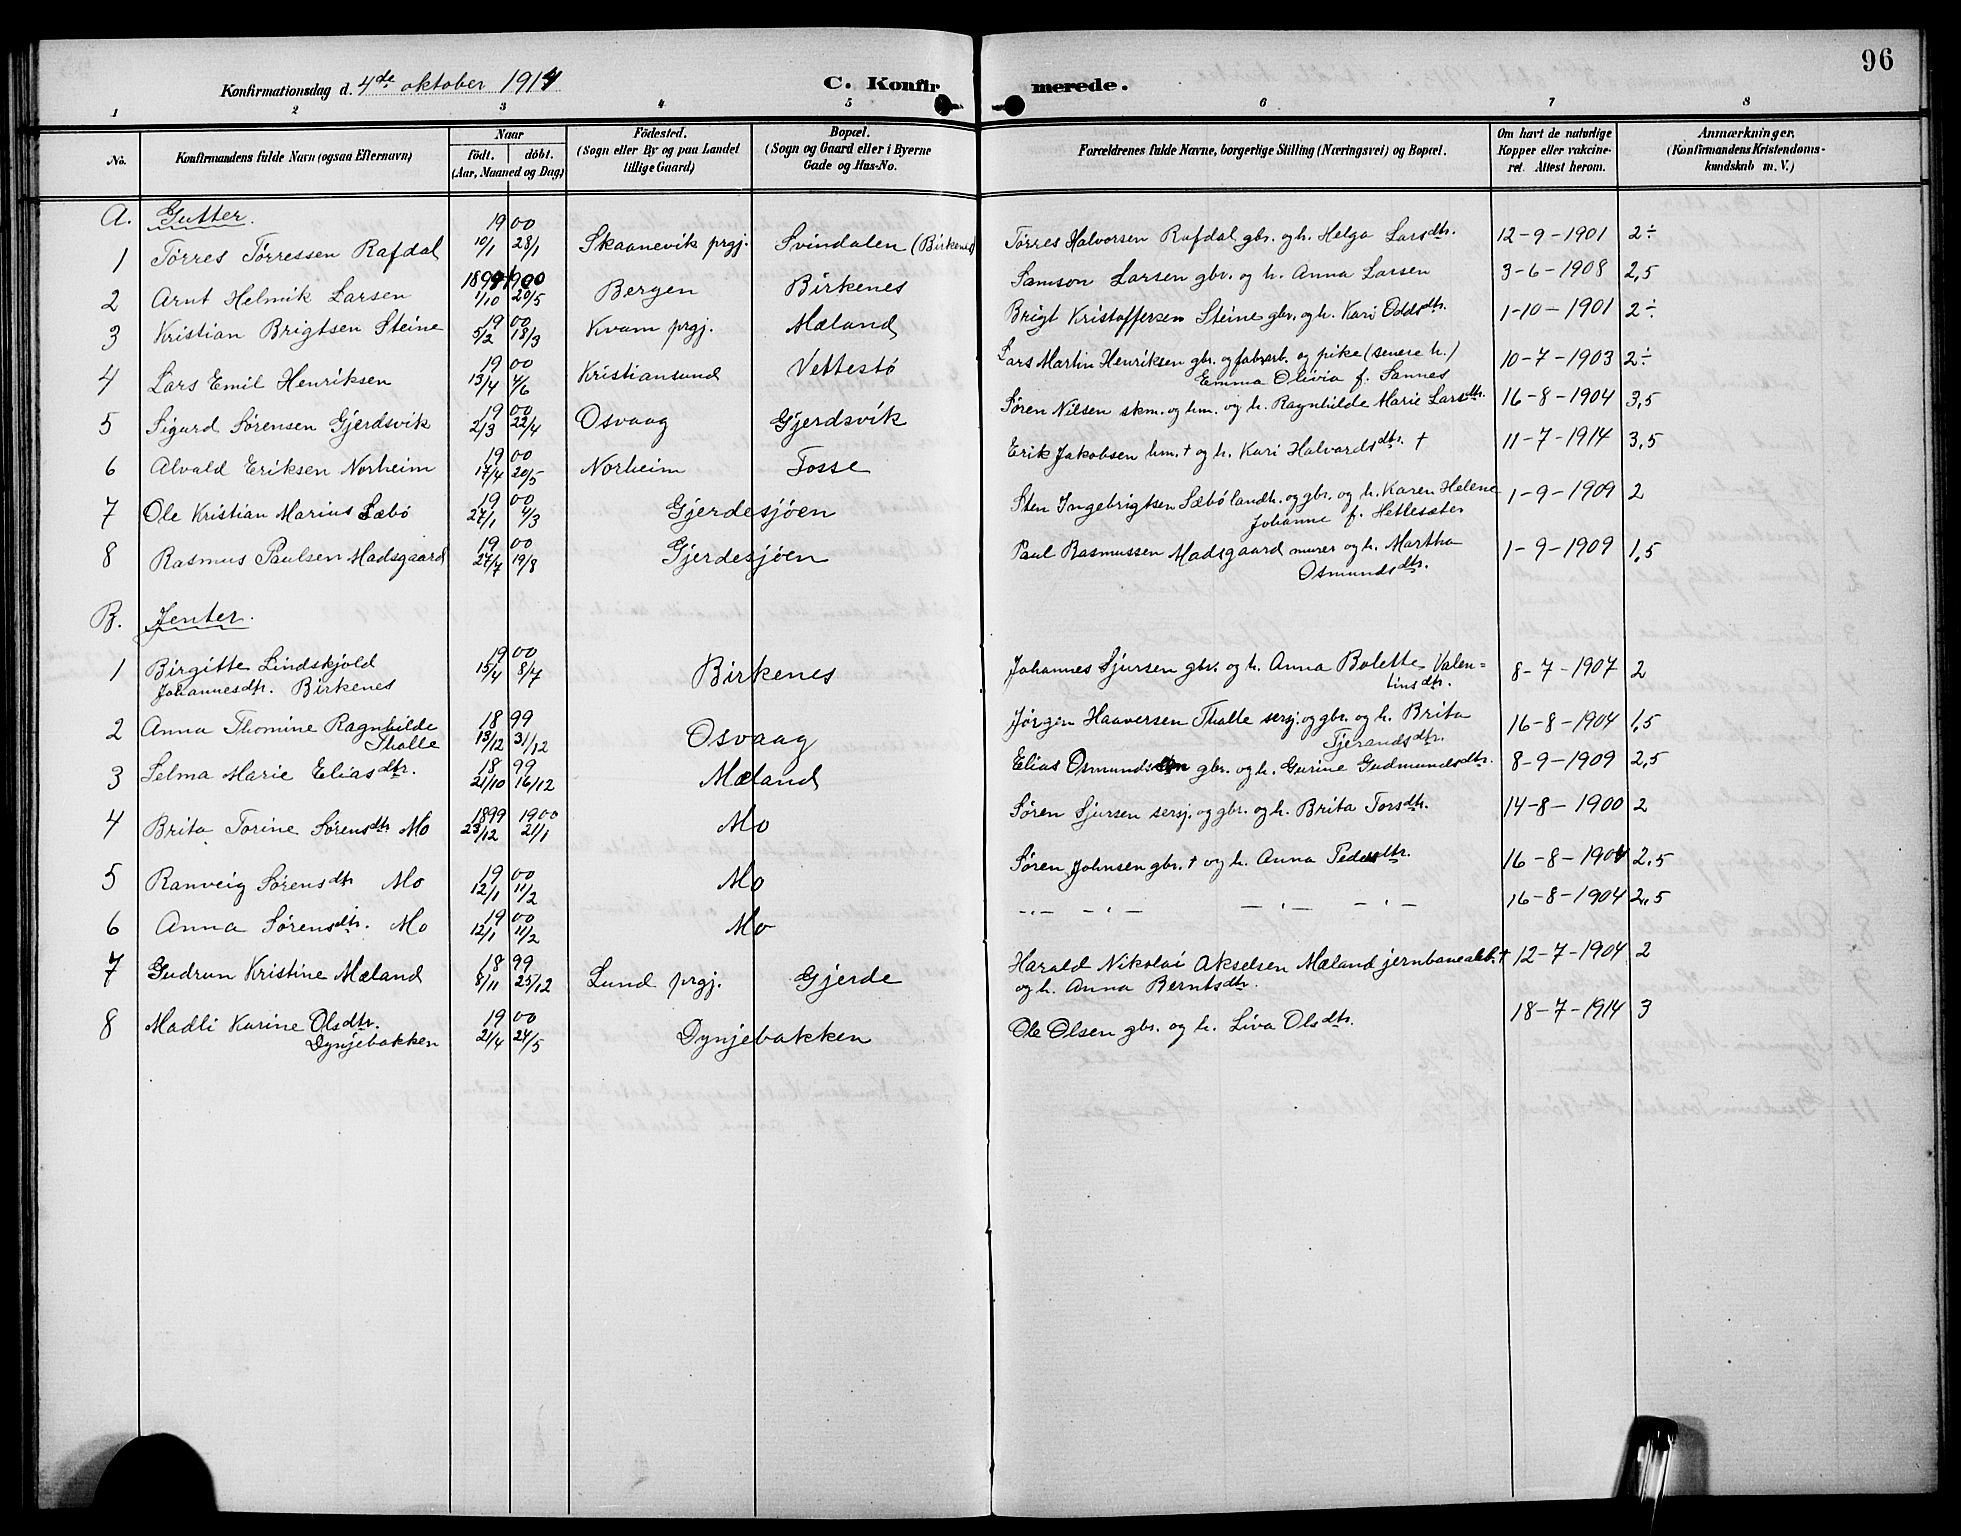 96
Konfirmationsdag d. 4de oktober 1914 C. Konfirmerede.
1 2 3 4 5 6 7 8
No. Konfirmandens fulde Navn (ogsaa Efternavn) Naar födt. döbt. (Aar, Maaned og Dag) Födested. (Sogn eller By og paa Landet tillige Gaard) Bopæl. (Sogn og Gaard eller i Byerne Gade og Hus-No. Forældrenes fulde Navne, borgerlige Stilling (Næringsvei) og Bopæl. Om havt de naturlige Kopper eller vakcineret. Attest herom. Anmærkninger. (Konfirmandens Kristendomskundskab m. V.)
A. Gutter.
1 Tørres Tørressen Rafdal 1900 10/1 28/1 Skaanevik prgj. Svindalen (Birkenes) Tørres Halvorsen Rafdal gbr. og h. Helga Larsdtr. 12-9-1901 2÷
2 Arnt Helmik Larsen 1899 1900 1/10 20/5 Bergen Birkenes Samson Larsen gbr. og h. Anna Larsen 3-6-1908 2,5
3 Kristian Brigtsen Steine 1900 5/2 18/3 Kvam prgj. Mæland Brigt Kristoffersen Steine gbr. og h. Kari Oddsdtr. 1-10-1901 2÷
4 Lars Emil Henriksen 1900 13/4 4/6 Kristiansund Vettestø Lars Martin Henriksen gbr. og fabarb. og pike (senere h.)
Emma Olivia f. Sannes 10-7-1903 2÷
5 Sigurd Sørensen Gjerdsvik 1900 2/3 22/4 Osvaag Gjerdsvik Søren Nilsen skm. og hm. og h. Ragnhilde Marie Larsdtr. 16-8-1904 3,5
6 Alvald Eriksen Norheim 1900 17/4 20/5 Norheim Tosse Erik Jakobsen hm. † og h. Kari Halvardsdtr. † 11-7-1914 3,5
7 Ole Kristian Marius Sæbø 1900 27/1 4/3 Gjerdesjøen Sten Ingebrigtsen Sæbø landh. og gbr. og h. Karen Helene
Johanne f. Hetlesæter 1-9-1909 2
8 Rasmus Paulsen Madsgaard 1900 27/7 19/8 Gjerdesjøen Paul Rasmussen Madsgaard murer og h. Martha
Osmundsdtr. 1-9-1909 1,5
B. Jenter.
1 Birgitte Lindskjold
Johannesdtr. Birkenes 1900 15/4 8/7 Birkenes Johannes Sjursen gbr. og h. Anna Bolette Valen=
tinsdtr. 8-7-1907 2
2 Anna Thomine Ragnhilde
Thalle 1899 13/12 31/12 Osvaag Jørgen Haaversen Thalle sersj. og gbr. og h. Brita
Tjerandsdtr. 16-8-1904 1,5
3 Selma Marie Eliasdtr. 1899 21/10 16/12 Mæland Elias Osmundsen gbr. og h. Gurine Gudmundsdtr. 8-9-1909 2,5
4 Brita Torine Sørensdtr Mo 1899 1900 23/12 21/1 Mo Søren Sjursen sersj. og gbr. og h. Brita Torsdtr. 14-8-1900 2
5 Ranveig Sørensdtr Mo 1900 12/1 11/2 Mo Søren Johnsen gbr. † og h. Anna Pedersdtr. 16-8-1904 2,5
6 Anna Sørensdtr. Mo 1900 12/1 11/2 Mo -"- -"- -"- -"- 16-8-1904 2,5
7 Gudrun Kristine Mæland 1899 8/11 25/12 Lund prgj. Gjerde Harald Nikolai Akselsen Mæland jernbanearb. †
og h. Anna Berntsdtr. 12-7-1904 2
8 Madli Karine Olsdtr.
Dynjebakken 1900 21/4 24/5 Dynjebakken Ole Olsen gbr. og h. Liva Olsdtr. 18-7-1914 3